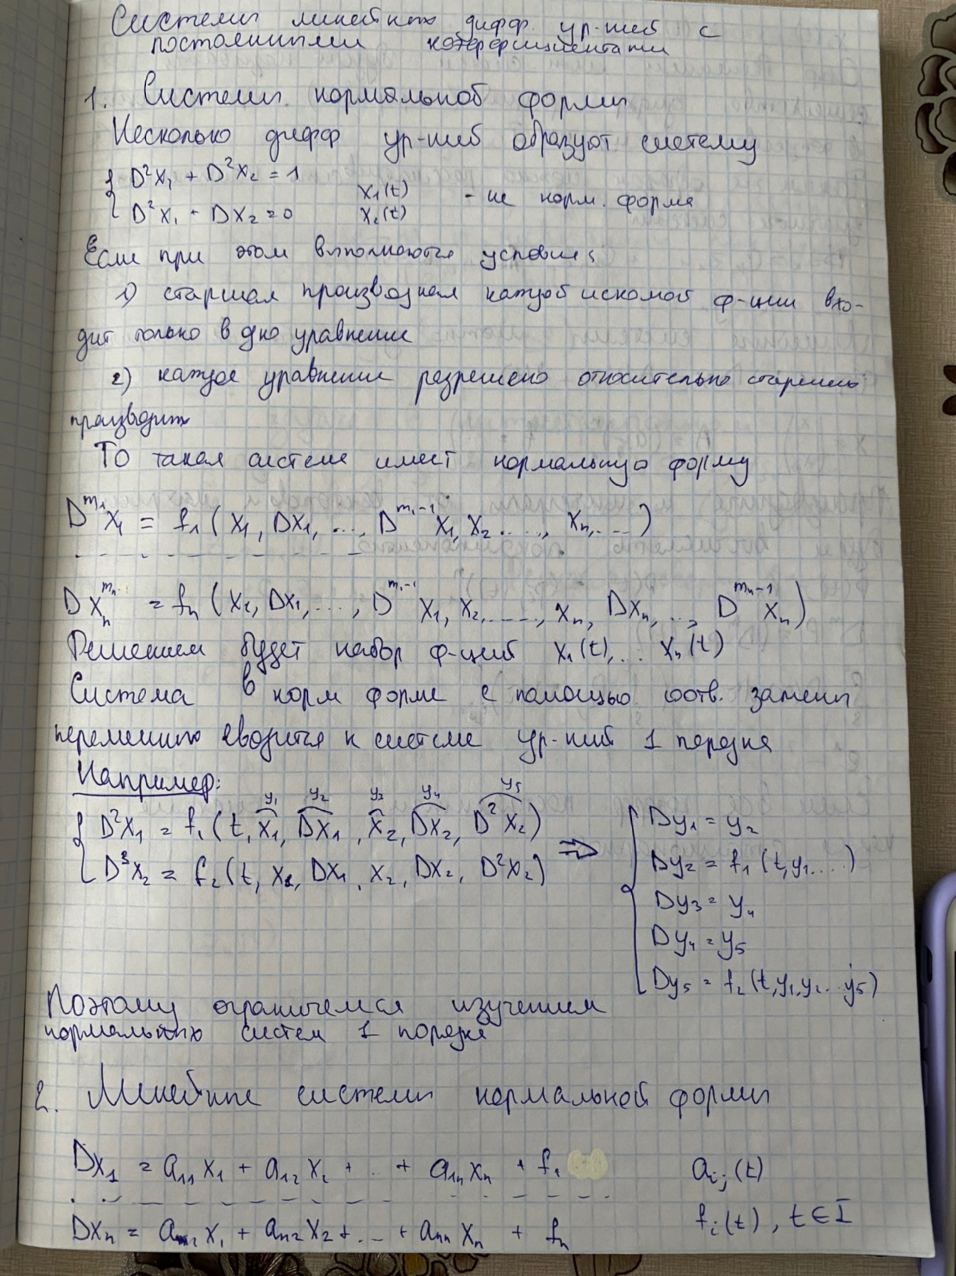 Системы линейных дифф. ур-ний с
постоянными коэффициентами
1. Системы нормальной формы
Несколько дифф ур-ний образуют систему
{ D²x₁ + D²x₂ = 1
{ D²x₁ - Dx₂ = 0 x₁(t) x₂(t) - не норм. форма
Если при этом выполняются условия:
1) старшая производная каждой искомой ф-ции вхо-
дит только в одно уравнение
2) каждое уравнение разрешено относительно старших
производных
То такая система имеет нормальную форму
D^{m₁}x₁ = f₁(x₁, Dx₁, ..., D^{m₁-1}x₁, x₂ ..., xₙ, ...)
- - - - - - - - - -
Dxₙ^{mₙ} = fₙ(x₁, Dx₁, ..., D^{m₁-1}x₁, x₂, ..., xₙ, Dxₙ, ..., D^{mₙ-1}xₙ)
Решением будет набор ф-ций x₁(t), ... xₙ(t)
Система в норм форме с помощью соотв. замены
переменных сводится к системе ур-ний 1 порядка
Например:
y₁ y₂ y₃ y₄ y₅
{ D²x₁ = f₁(t, x₁, Dx₁, x₂, Dx₂, D²x₂)
{ D³x₂ = f₂(t, x₁, Dx₁, x₂, Dx₂, D²x₂) ⇒
{ Dy₁ = y₂
Dy₂ = f₁(t, y₁ ...)
Dy₃ = y₄
Dy₄ = y₅
Dy₅ = f₂(t, y₁, y₂ ... y₅)
Поэтому ограничемся изучением
нормальных систем 1 порядка
2. Линейные системы нормальной формы
Dx₁ = a₁₁x₁ + a₁₂x₂ + ... + a₁ₙxₙ + f₁ aᵢⱼ(t)
- - - - - - - - - -
Dxₙ = aₙ₁x₁ + aₙ₂x₂ + ... + aₙₙxₙ + fₙ fᵢ(t), t ∈ I